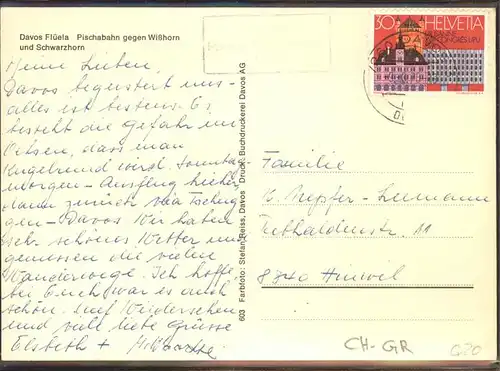 Davos Flüela Pischabahn gegen Wißhorn
und Schwarzhorn
Meine Lieben,
Davos begeistert uns –
alles ist bestens. Es
besteht die Gefahr im
Ochsen, dass man
Kugelrund wird. Sonntag
morgen – Ausflug hieher,
dann zurück via
gen – Davos. Wir haben
sehr schönes Wetter und
geniessen die vielen
Wanderwege. Ich hoffe,
bei Euch war es auch
schön. Auf Wiedersehen
und viele liebe Grüsse
Elsbeth +
603 Farbfoto: Stefan Reiss, Davos Druck: Buchdruckerei Davos AG
30
HELVETIA
UPU
Familie
K. Nepfer-
11
8340 Hinwil
CH-GR